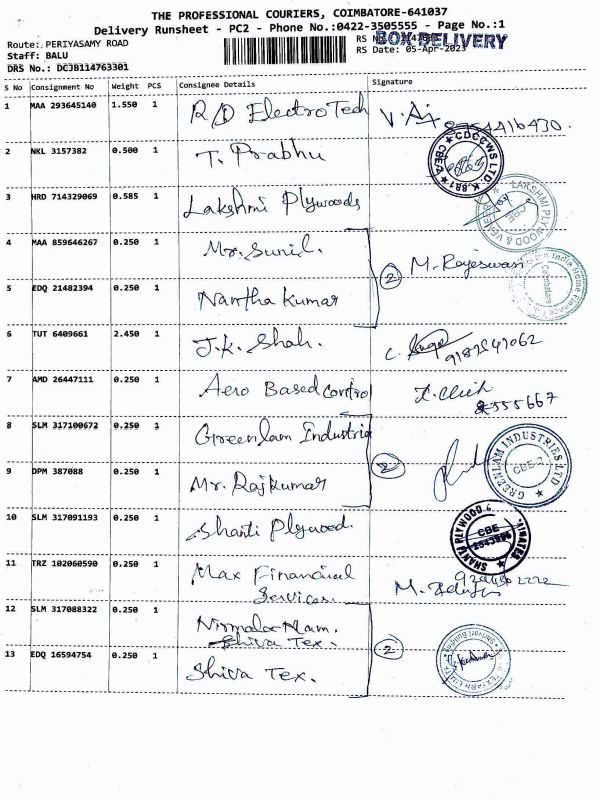 THE PROFESSIONAL COURIERS, COIMBATORE-641037
Delivery Runsheet - PC2 - Phone No.:0422-3505555 - Page No.:1
Route: PERIYASAMY ROAD
BOX DELIVERY
Staff: BALU
RS Date: 05-Apr-2023
DRS No.: DCJB114763301
S No Consignment No Weight PCS Consignee Details Signature
1 MAA 293645140 1.550 1 R/D ElectroTech
2 NKL 3157382 0.500 1 T. Prabhu
3 HRD 714329069 0.585 1 Lakshmi Plywoods
4 MAA 859646267 0.250 1 Mr. Sunil.
2 M. Rajeswari
5 EDQ 21482394 0.250 1 Nantha Kumar
6 TUT 6409661 2.450 1 J.K. Shah.
7 AMD 26447111 0.250 1 Aero Based Control
8 SLM 317100672 0.250 1 Greenlam Industria
GREENLAM INDUSTRIES LTD
CBE-2
2
9 DPM 387088 0.250 1 Mr. Rajkumar
10 SLM 317091193 0.250 1 Shanti Plywood.
CBE
11 TRZ 102060590 0.250 1 Max Financial
Services.
12 SLM 317088322 0.250 1 Nirmala Nam.
Shiva Tex.
2
13 EDQ 16594754 0.250 1 Shiva Tex.